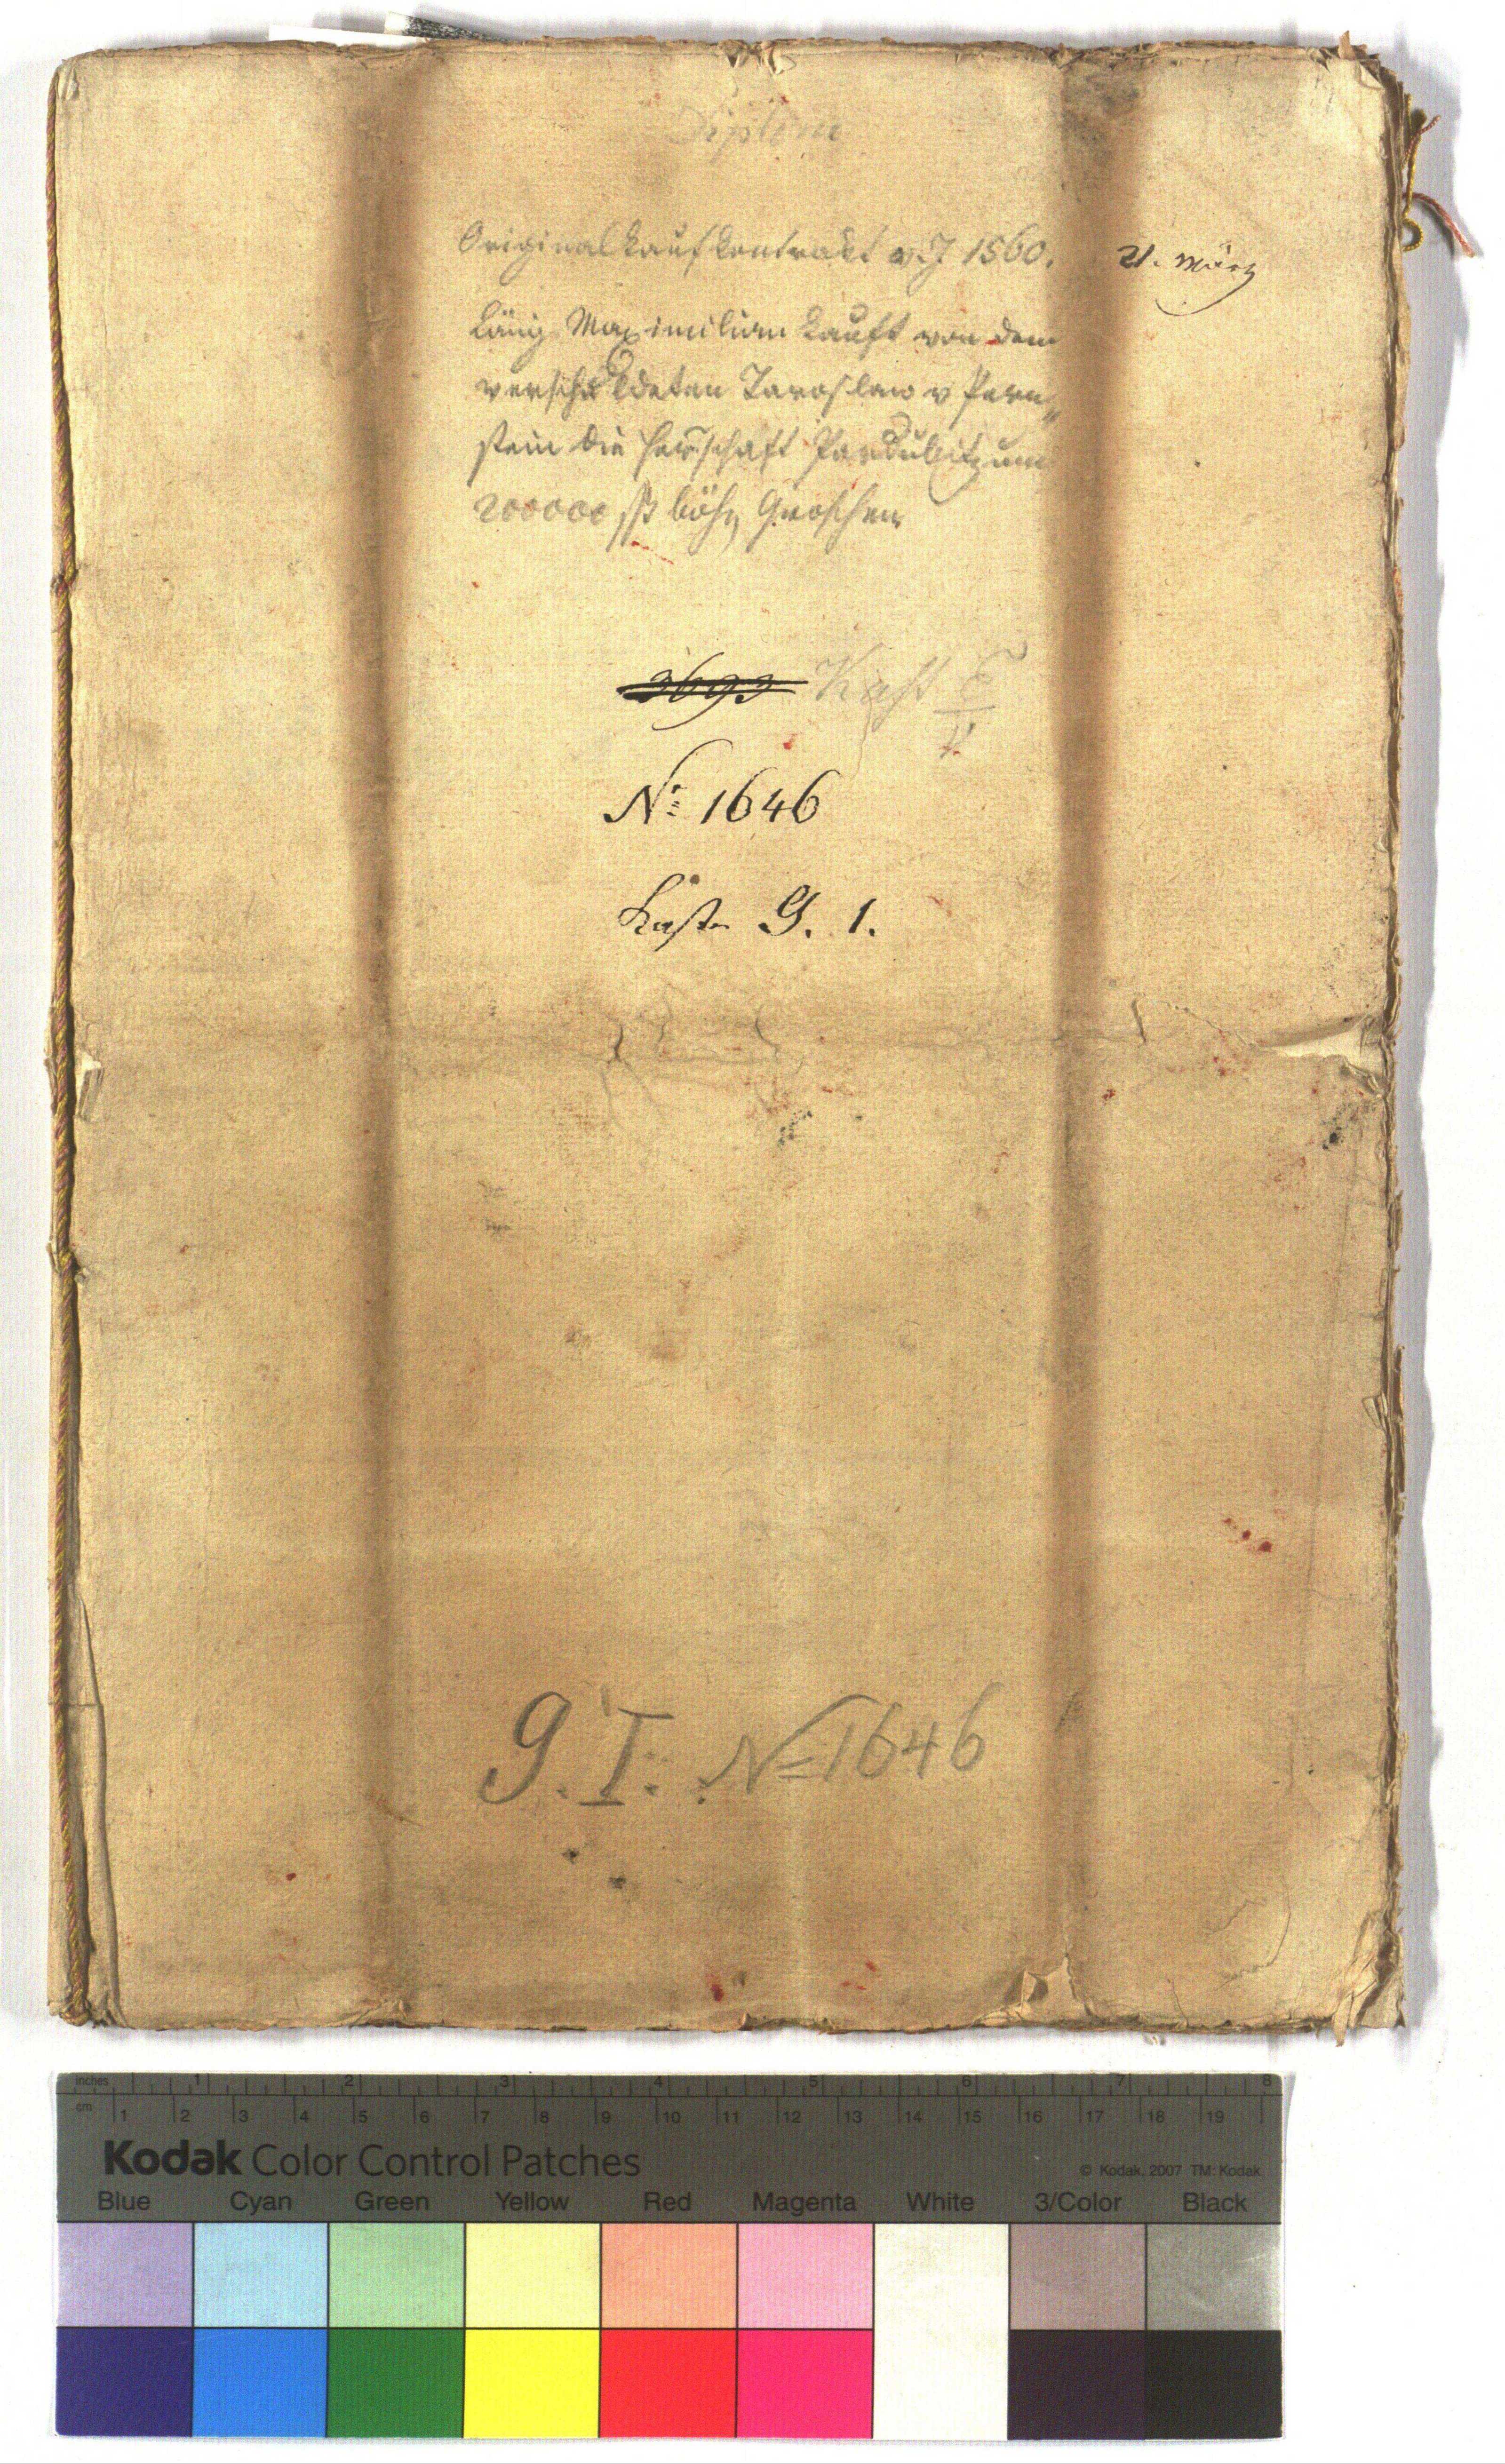 Diplom
Originalkaufkontrakt v. J 1560. 21. März
König Maximilian kauft von dem
verschuldeten Jaroslaw v Pern„
stein die Herrschaft Pardubitz um
200000 ß böhm Groschen
3693 Kast E
N: 1646
Kasten G. 1.
G. I. N=1646
inches 1 2 3 4 5 6 7 8
cm 1 2 3 4 5 6 7 8 9 10 11 12 13 14 15 16 17 18 19
Kodak Color Control Patches
© Kodak, 2007 TM: Kodak
Blue Cyan Green Yellow Red Magenta White 3/Color Black